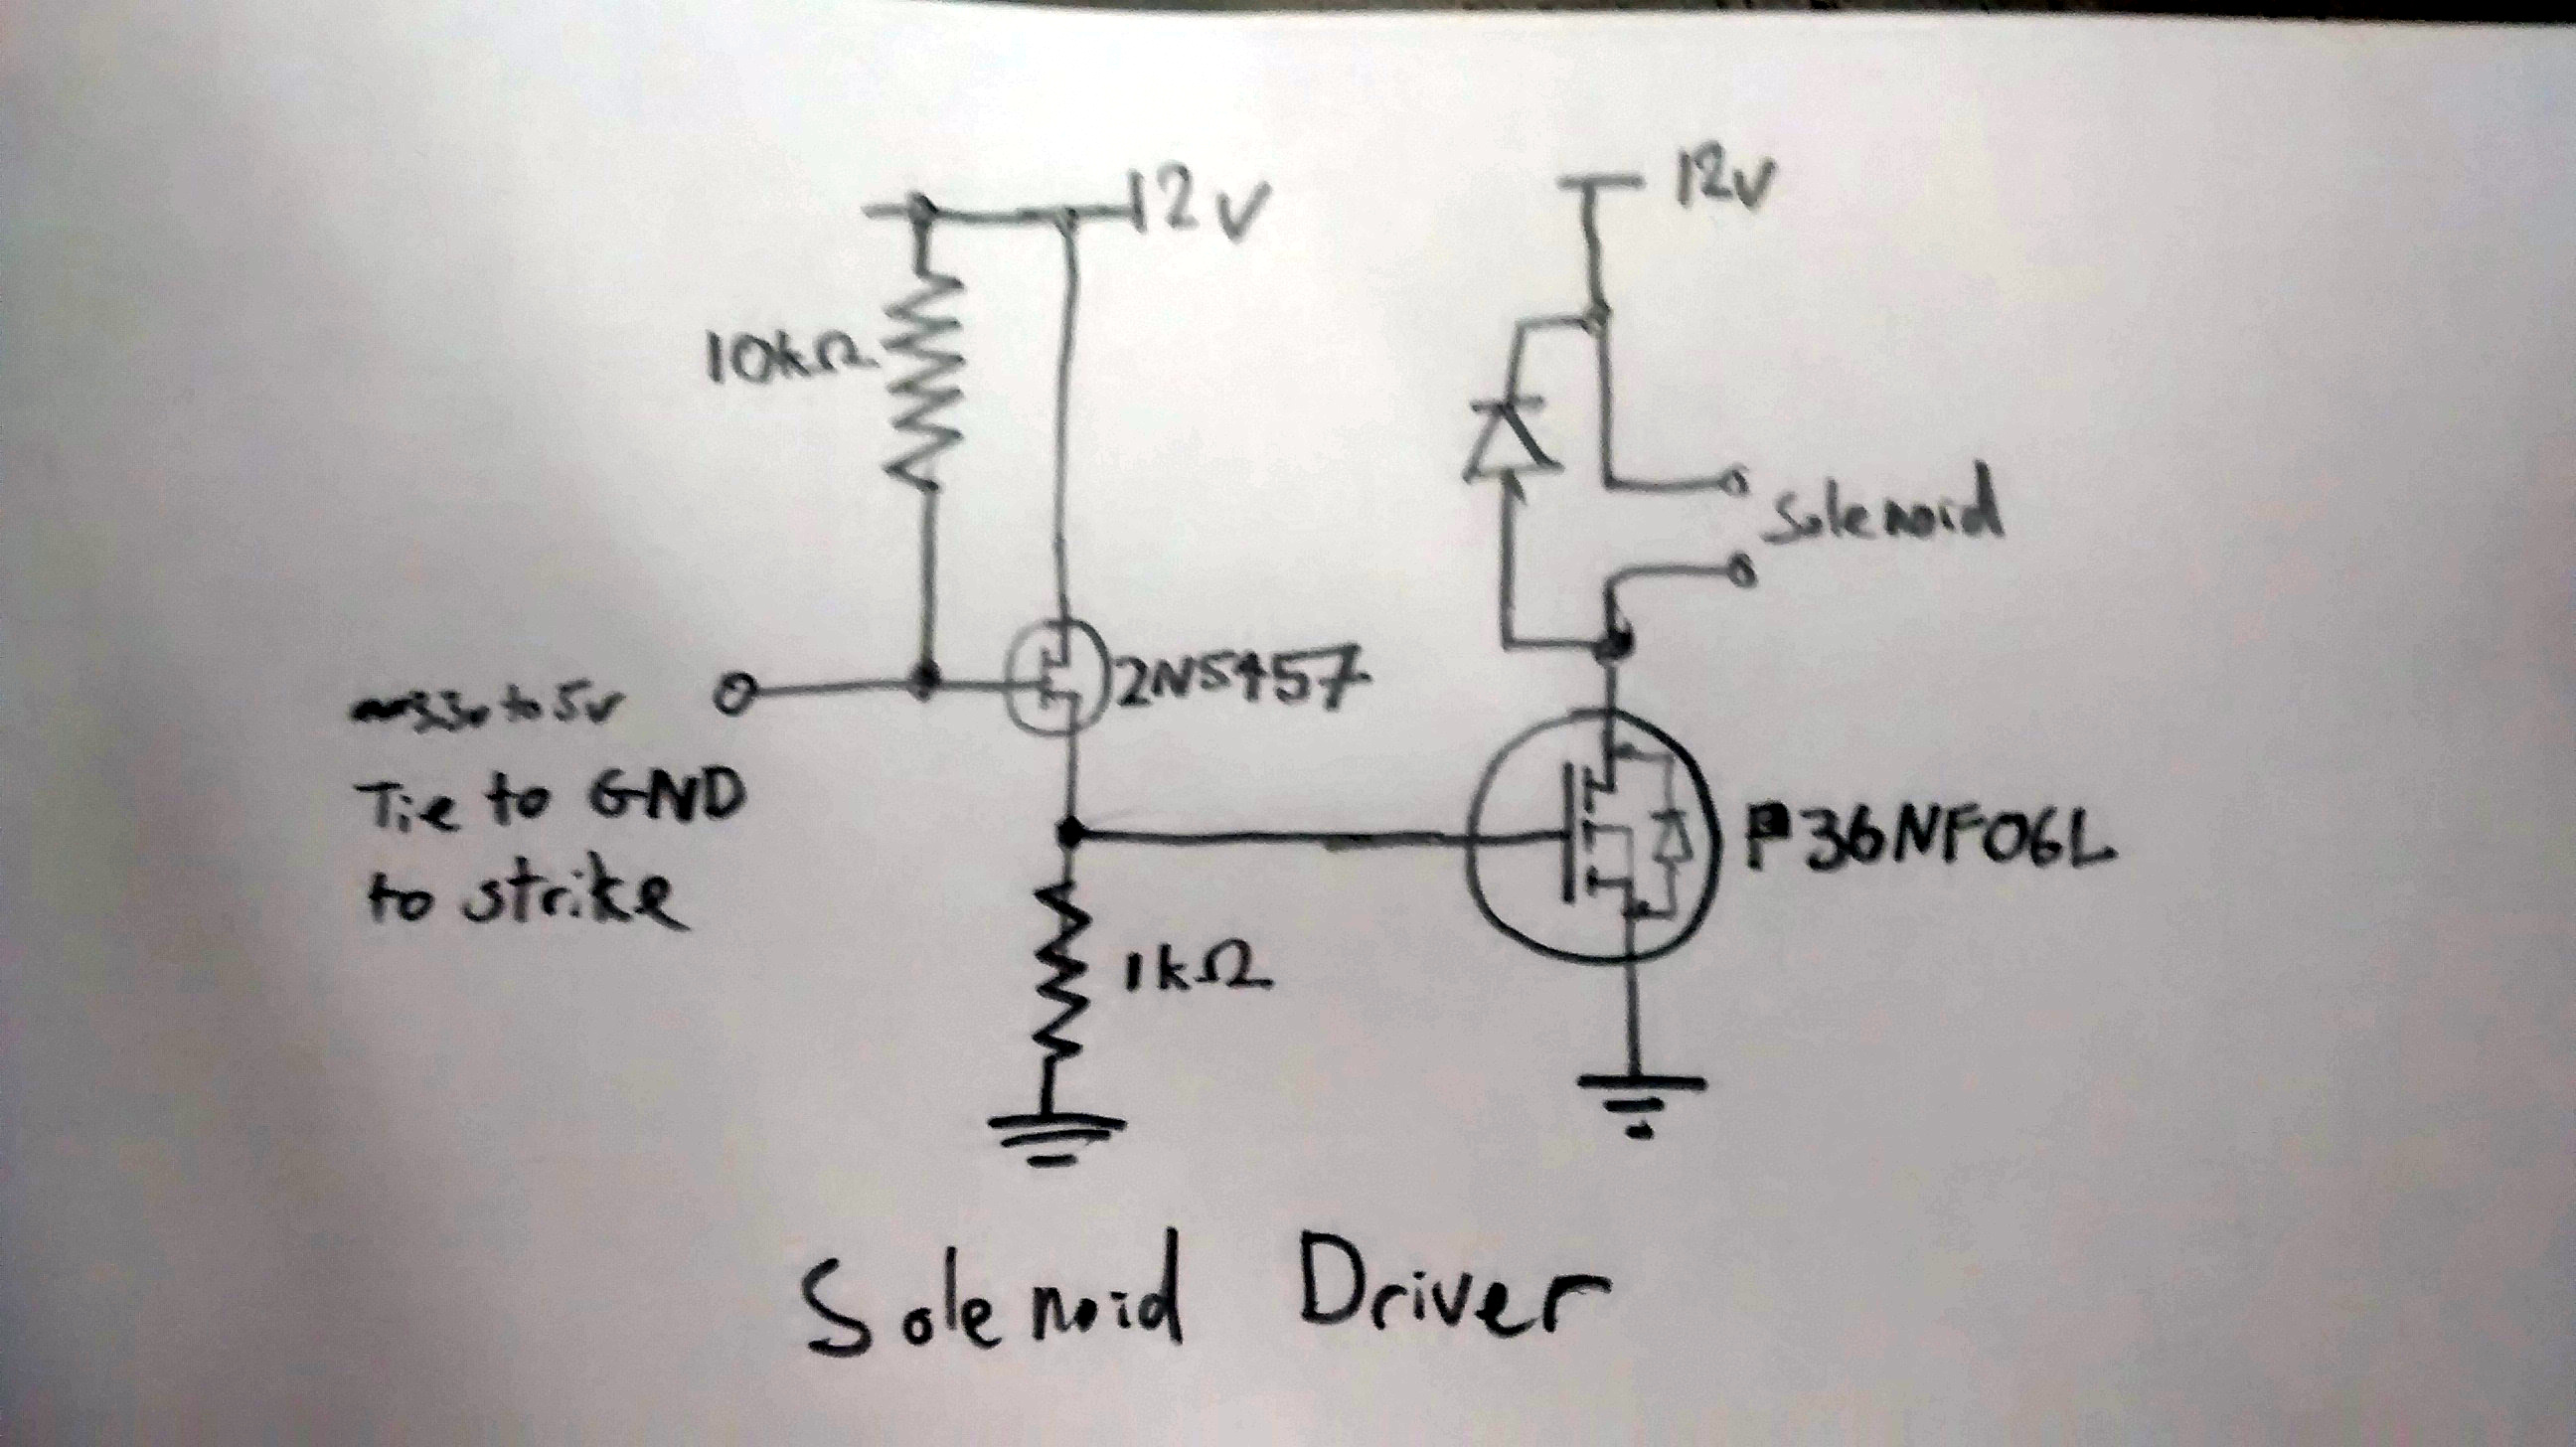 12v
12v
10kΩ
Solenoid
2N5457
to 5v
Tie to GND
to strike
P36NF06L
1kΩ
Solenoid Driver